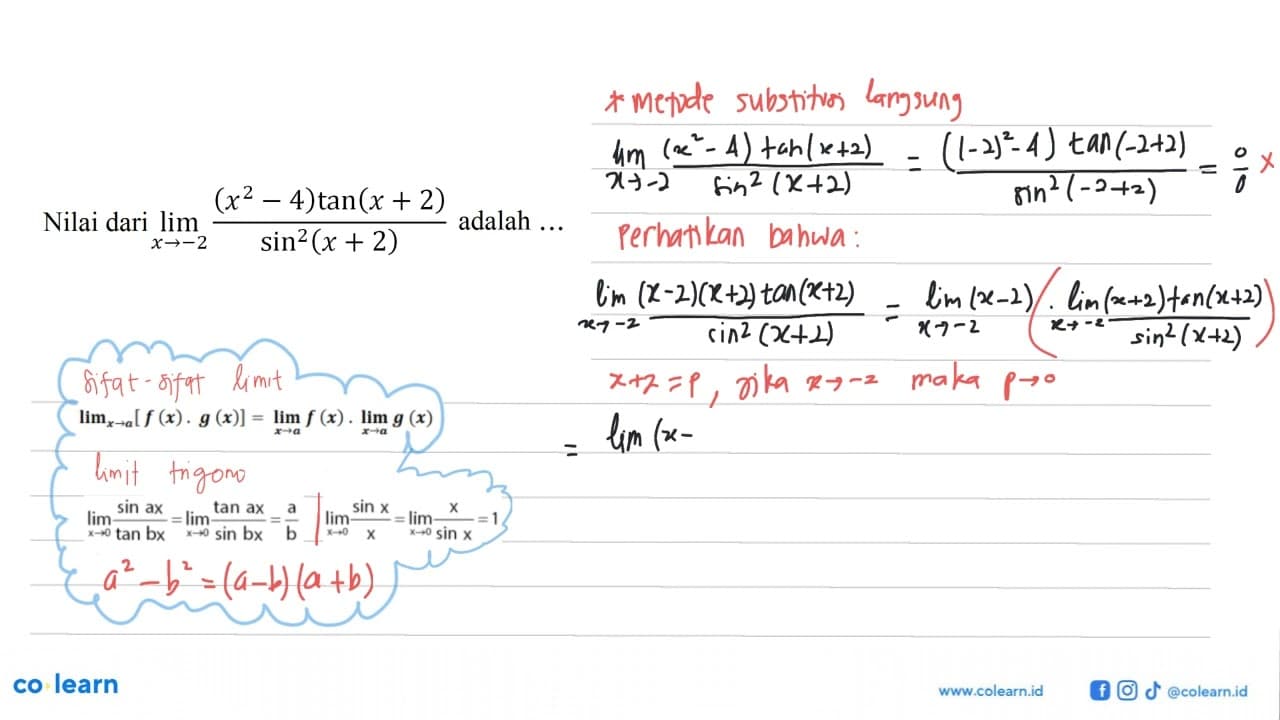 Nilai dari lim x→-2 (x² − 4)tan(x + 2) / sin²(x + 2) adalah ...
sifat-sifat limit
lim x→a [f (x) . g (x)] = lim x→a f (x) . lim x→a g (x)
limit trigono
lim x→0 sin ax / tan bx = lim x→0 tan ax / sin bx = a / b | lim x→0 sin x / x = lim x→0 x / sin x = 1
a² − b² = (a−b)(a+b)
* metode substitusi langsung
lim x→-2 (x² − 4) tan(x+2) / sin² (x+2) = ((-2)² − 4) tan(-2+2) / sin² (-2+2) = 0/0 ×
Perhatikan bahwa:
lim x→-2 (x−2)(x+2) tan(x+2) / sin² (x+2) = lim x→-2 (x−2) ( . lim x→-2 (x+2) tan(x+2) / sin² (x+2) )
x+2 = p, jika x→-2 maka p→0
= lim (x −
co learn
www.colearn.id
@colearn.id